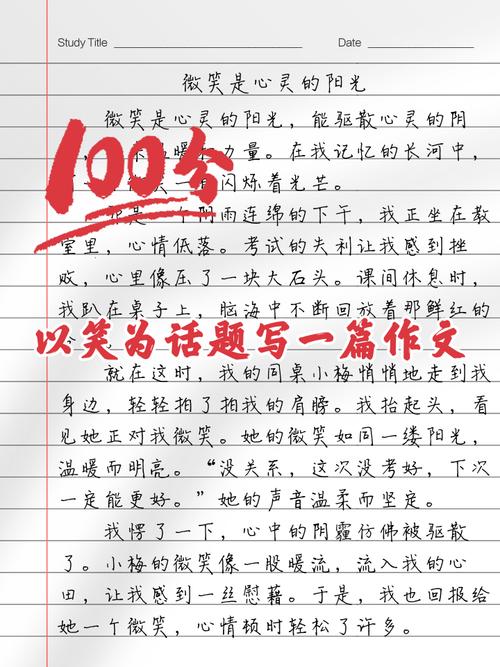 Study Title
Date
微笑是心灵的阳光
微笑是心灵的阳光，能驱散心灵的阴
温暖 力量。在我记忆的长河中，
100分
一 微笑一 闪烁着光芒。
那是一个阴雨连绵的下午，我正坐在教
室里，心情低落。考试的失利让我感到挫
败，心里像压了一块大石头。课间休息时，
我趴在桌子上，脑海中不断回放着那鲜红的
以笑为话题写一篇作文
就在这时，我的同桌小梅悄悄地走到我
身边，轻轻拍了拍我的肩膀。我抬起头，看
见她正对我微笑。她的微笑如同一缕阳光，
温暖而明亮。“没关系，这次没考好，下次
一定能更好。”她的声音温柔而坚定。
我愣了一下，心中的阴霾仿佛被驱散
了。小梅的微笑像一股暖流，流入我的心
田，让我感到一丝慰藉。于是，我也回报给
她一个微笑，心情顿时轻松了许多。